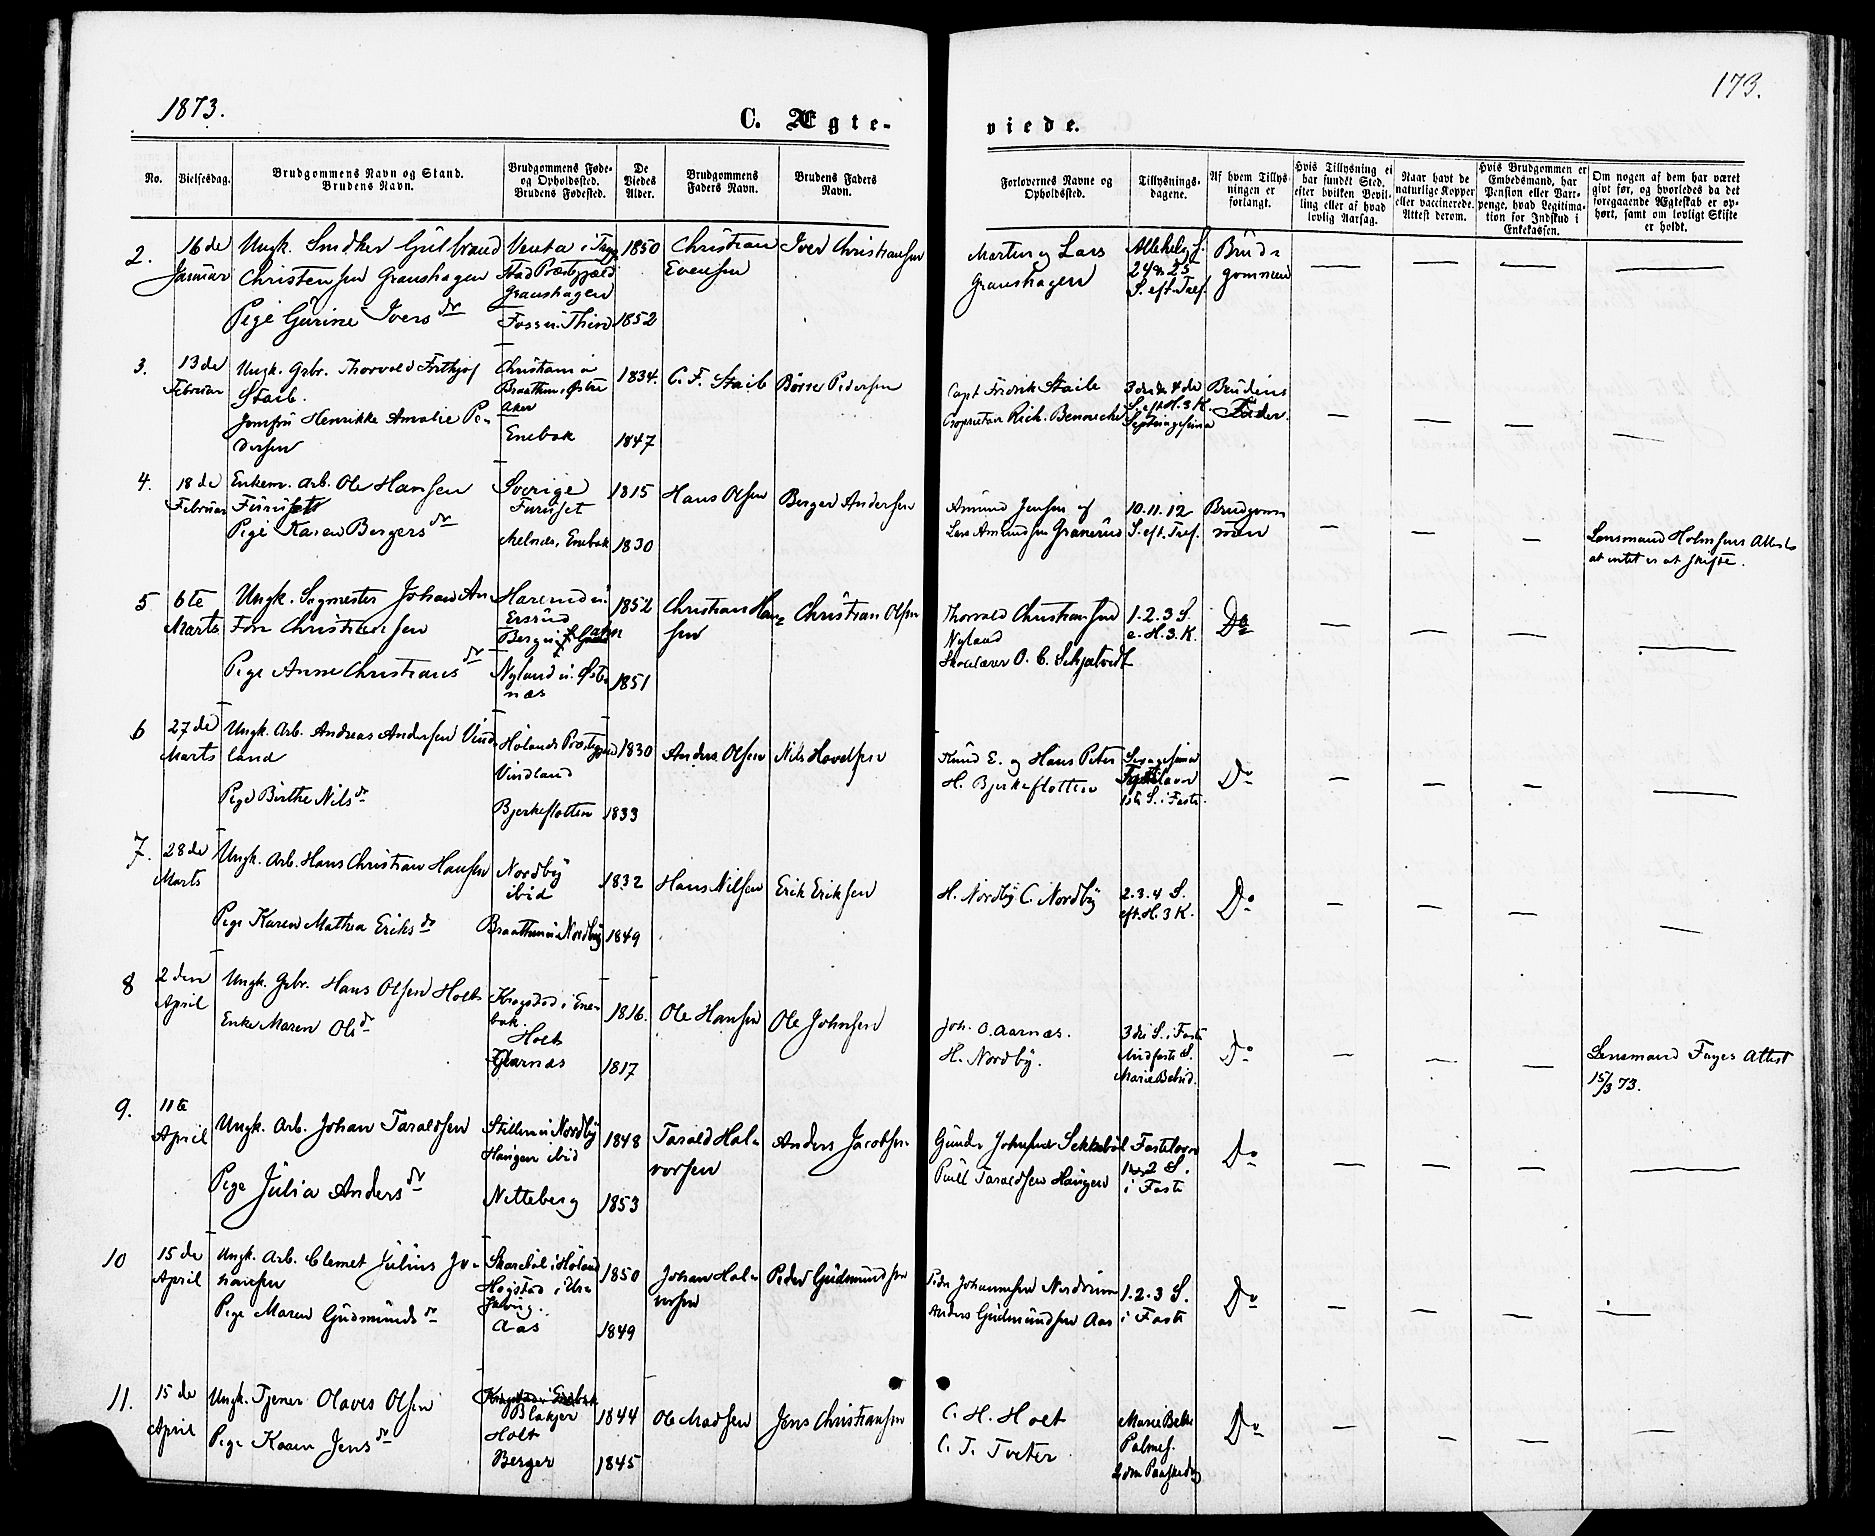 1873.
173.
C. Ægte-
viede.
No.
Vielsesdag.
Brudgommens Navn og Stand.
Brudens Navn.
Brudgommens Føde-
og Opholdssted.
Brudens Fødested.
De
Viedes
Alder.
Brudgommens
Faders Navn.
Brudens Faders
Navn.
Forlovernes Navne og
Opholdssted.
Tillysnings-
dagene.
Af hvem Tillys-
ningen er
forlangt.
Hvis Tillysning ei
har fundet Sted,
efter hvilken Bevil-
ling eller af hvad
lovlig Aarsag.
Naar havt de
naturlige Kopper
eller vaccinerede.
Attest derom.
Hvis Brudgommen er
Embedsmand, har
Pension eller Var-
penge, hvad Legitima-
tion for Indskud i
Enkekassen.
Om nogen af dem har været
givt før, og hvorledes da det
foregaaende Ægteskab er op-
hørt, samt om lovligt Skifte
er holdt.
2.
16de
Januar
Ungk. Snedker Gulbrand
Christensen Granshagen
Pige Gurine Ivers dr
Stad Præstegjæld
Granshagen
Fosser i
1850
1852
Christian
Evensen
Iver Christiansen
Martin og Lars
Granshagen
Allehelg. S.
24 & 25
S. eft. Tref.
Brud-
gommen
3.
13de
Februar
Ungk. Gbr. Thorvald Frithjof
Staib.
Jomfru Henrikke Amalie Pe-
dersen
Christiania
Braathen i Østre
Aker
Enebak
1834.
1847
C. F. Staib
Børre Pedersen
Capt Fredrik Staib
Proprietær Rich. Bennecke
3die & 4de
S. eft H. 3 K.
Septuagesima
Brudens
Fader.
4.
18de
Februar
Enkem. Arb. Ole Hansen
Furuset
Pige Karen Bergers dr
Sverige
Furuset
Melnes, Enebak
1815
1830
Hans Olsen
Berger Andersen
Amund Jensen og
Lars Amundsen Granerud
10. 11. 12
S. eft. Tref.
Brudgom-
men
Lensmand Holmsens Attest
at intet er at skifte.
5
6te
Marts
Ungk. Sagmester Johan An-
ton Christiansen
Pige Anne Christians dr
Ersrud
Nyland i Øst-
næs
1852
1851
Christian Han-
sen
Christian Olsen
Thorvald Christiansen
Nyland
Skolelærer O. C. Schjatvedt
1. 2. 3 S.
e. H. 3. K.
Do
6
27de
Marts
Ungk. Arb. Andreas Andersen Vind-
land
Pige Birthe Nils dr
Hølands Præstegjæld
Vindland
Bjerkeflotten
1830
1833
Anders Olsen
Nils Hovelsen
Knud E. og Hans Peter
H. Bjerkeflotten
Sexagesima
Fastelavn
1ste S. i Faste.
Do
7.
28de
Marts
Ungk. Arb. Hans Christian Hansen
Pige Karen Mathea Eriks dr
Nordby
ibid
Braathen i Nordby
1832
1849
Hans Nilsen
Erik Eriksen
H. Nordby C. Nordby
2. 3. 4 S.
eft. H. 3 K.
Do
8
2den
April
Ungk. Gbr. Hans Olsen Holt
Enke Maren Ols dr
Kragstad i Ene-
bak
Holt
1816.
1817
Ole Hansen
Ole Johnsen
Joh. O. Aarnæs.
H. Nordby.
3die S. i Faste
Midfaste S.
Mariæ Bebud.
Do
Lensmand Fayes Attest
15/3 73.
9.
11te
April
Ungk. Arb. Johan Taraldsen
Pige Julia Anders dr
Stillern i Nordby
Haugen ibid
Netteberg
1848
1853
Tarald Hal-
vorsen
Anders Jacobsen
Gunder Johnsen Sekkebøl
Poul Taraldsen Haugen
Fastelavn
1 og 2 S.
i Faste
Do
10
15de
April
Ungk. Arb. Clemet Julius Jo-
hansen
Pige Maren Gudmunds dr
Skarebøl i Høland
Hogstad i Ur-
skoug.
Aas
1850
1849
Johan Hal-
vorsen
Peder Gudmundsen
Peder Johannesen Nordrum
Anders Gudmundsen Aas
1. 2. 3 S.
i Faste
Do
11.
15de
April
Ungk. Tjener Olaves Olsen
Pige Karen Jens dr
Kragstad i Enebak
Blakjer
Holt
Berger
1844
1845
Ole Madsen
Jens Christiansen
C. H. Holt
C. T. Tveter
Mariæ Beb.
Palmes.
2den Paaskedag
Do